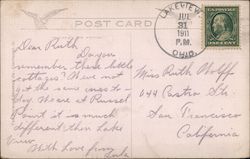 POST CARD
LAKEVIEW
JUL
31
1911
P.M.
OHIO
Dear Ruth
Do you
remember these little
cottages? Have not
got the same ones to-
day. We are at Russel
Point it is much
different than Lake
View.
With Love from
Miss Ruth Wolff.
644 Castro Str.
San Francisco
California